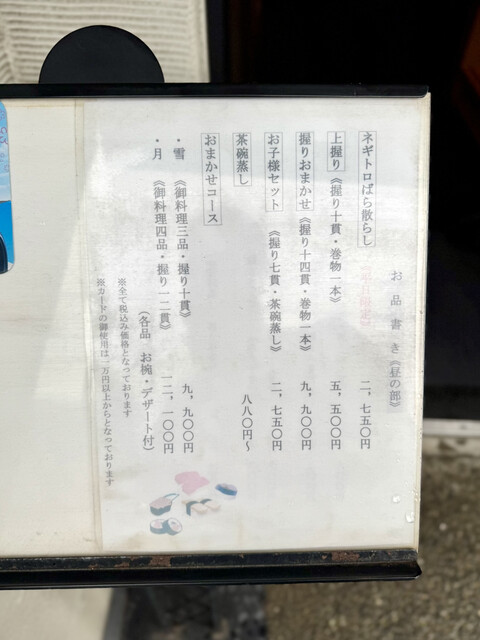 お品書き《昼の部》
ネギトロばら散らし 二、七五〇円
上握り《握り十貫・巻物一本》 五、五〇〇円
握りおまかせ《握り十四貫・巻物一本》 九、九〇〇円
お子様セット《握り七貫・茶碗蒸し》 二、七五〇円
茶碗蒸し 八八〇円～
おまかせコース
・雪《御料理三品・握り十貫》 九、九〇〇円
・月《御料理四品・握り一二貫》 一二、一〇〇円
（各品 お椀・デザート付）
※全て税込み価格となっております
※カードの御使用は一万円以上からとなっております